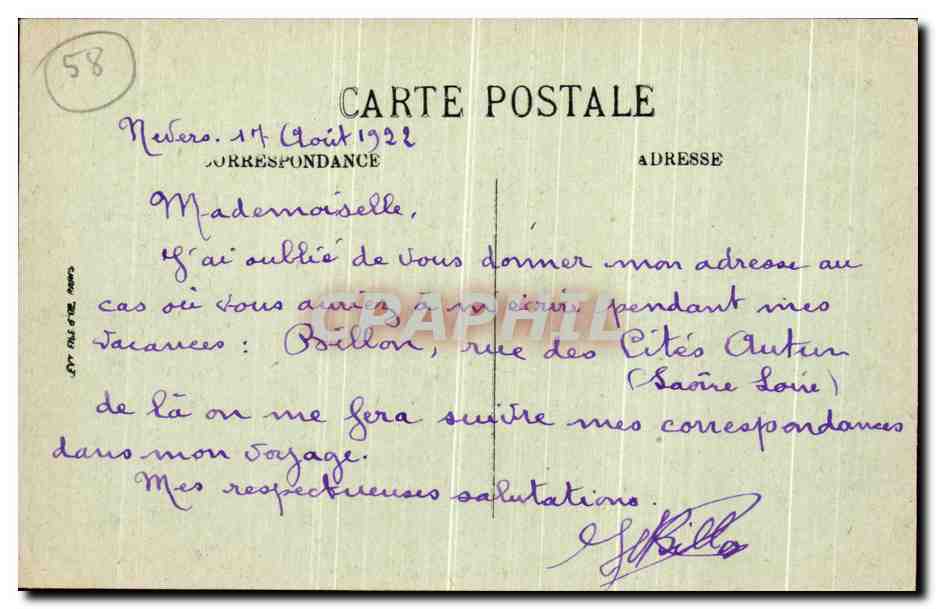 58
CARTE POSTALE
Nevers. 17 Août 1922
CORRESPONDANCE
ADRESSE
Mademoiselle,
J'ai oublié de vous donner mon adresse au
cas où vous auriez à m'écrire pendant mes
vacances : Billon, rue des Cités Autun
(Saône Loire)
de là on me fera suivre mes correspondances
dans mon voyage.
Mes respectueuses salutations.
Billon
CPAPHIL